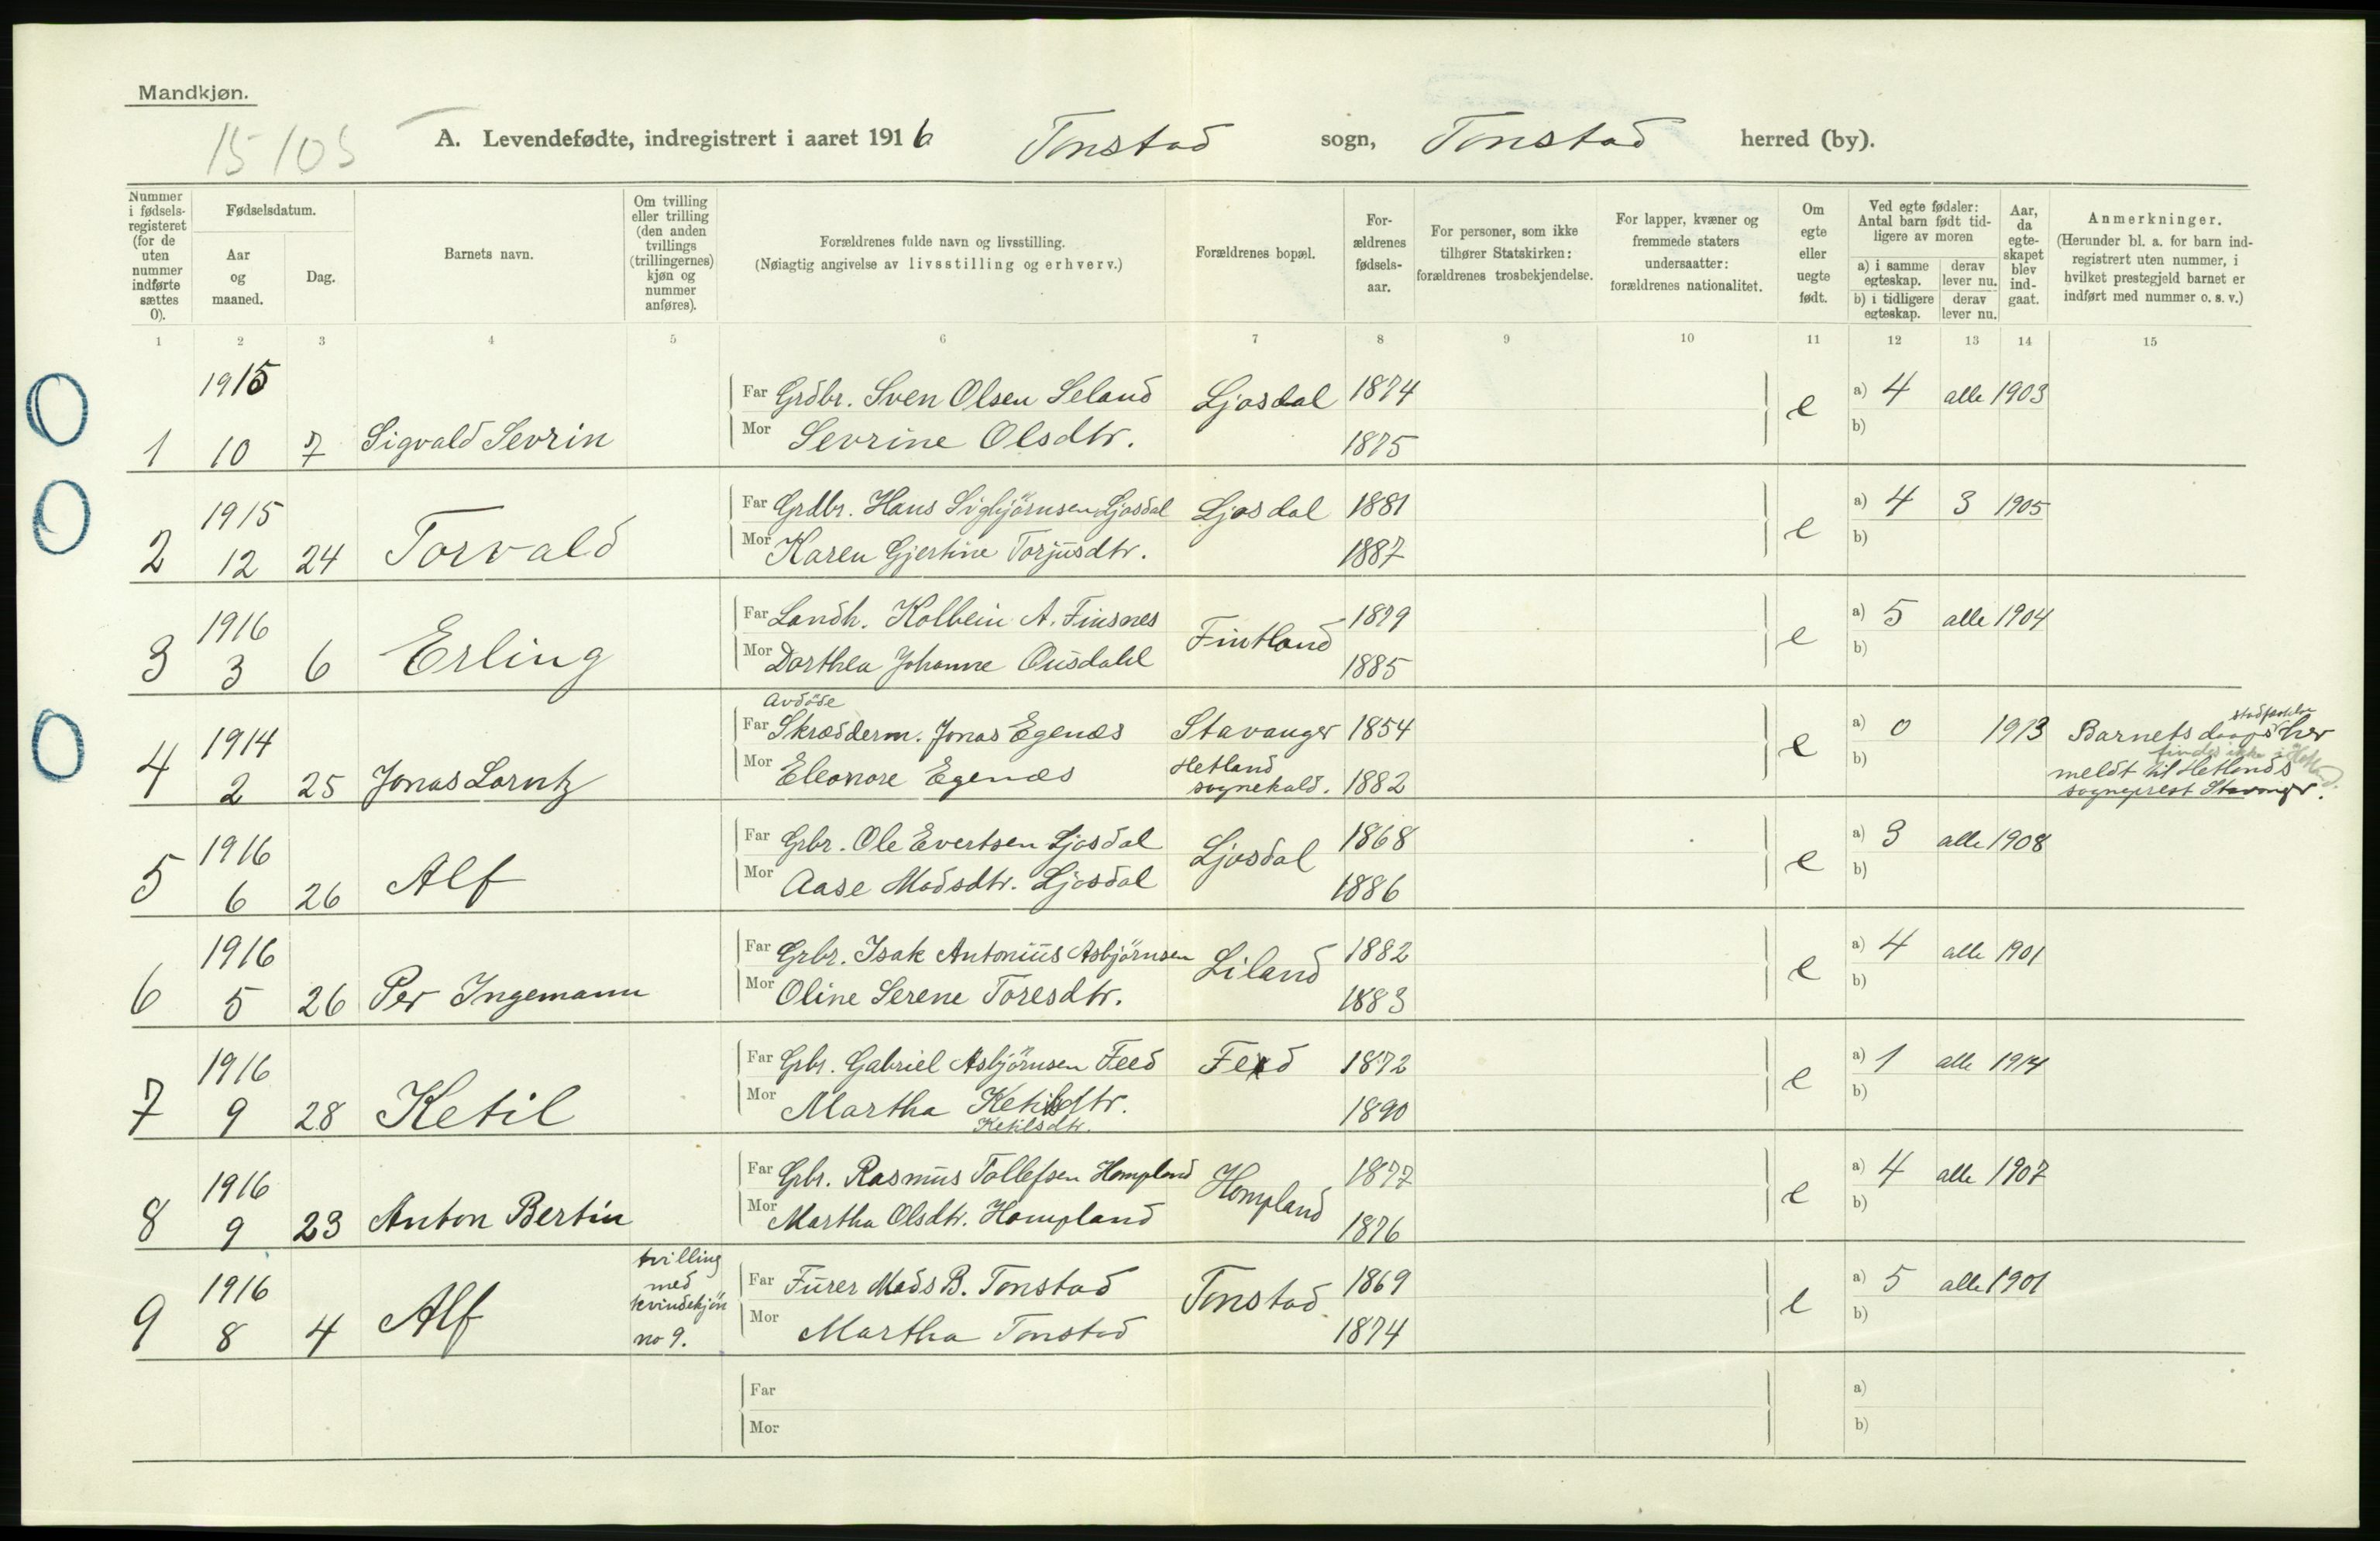 Mandkjøn.
15105
A. Levendefødte, indregistrert i aaret 1916 Tonstad sogn, Tonstad herred (by).
Nummer i fødselsregisteret (for de uten nummer indførte sættes 0).
Fødselsdatum.
Aar og maaned.
Dag.
Barnets navn.
Om tvilling eller trilling (den anden tvillings (trillingernes) kjøn og nummer anføres).
Forældrenes fulde navn og livsstilling.
(Nøiagtig angivelse av livsstilling og erhverv.)
Forældrenes bopæl.
Forældrenes fødselsaar.
For personer, som ikke tilhører Statskirken: forældrenes trosbekjendelse.
For lapper, kvæner og fremmede staters undersaatter: forældrenes nationalitet.
Om egte eller uegte født.
Ved egte fødsler: Antal barn født tidligere av moren
a) i samme egteskap. derav lever nu.
b) i tidligere egteskap. derav lever nu.
Aar, da egteskapet blev indgaat.
Anmerkninger.
(Herunder bl. a. for barn indregistrert uten nummer, i hvilket prestegjeld barnet er indført med nummer o. s. v.)
1 2 3 4 5 6 7 8 9 10 11 12 13 14 15
1915 Far Grdbr. Sven Olsen Seland Ljosdal 1874 e a) 4 alle 1903
1 10 7 Sigvald Sevrin Mor Sevrine Olsdtr. 1875 b)
1915 Far Grdbr. Hans Sigbjörnsen Ljosdal Ljosdal 1881 e a) 4 3 1905
2 12 24 Torvald Mor Karen Gjertine Torjusdtr. 1887 b)
1916 Far Landh. Kolbein A. Finsnes Fintland 1879 e a) 5 alle 1904
3 3 6 Erling Mor Dorthea Johanne Ousdahl 1885 b)
avdöde
1914 Far Skræderm. Jonas Egenæs Stavanger 1854 e a) 0 1913 Barnets daap her
4 2 25 Jonas Lorntz Mor Eleonore Egenæs Hetland sognekald. 1882 b) meldt til Hetlands sogneprest Stavanger.
1916 Far Grbr. Ole Evertsen Ljosdal Ljosdal 1868 e a) 3 alle 1908
5 6 26 Alf Mor Aase Madsdtr. Ljosdal 1886 b)
1916 Far Grbr. Isak Antonius Asbjörnsen Liland 1882 e a) 4 alle 1901
6 5 26 Per Ingemann Mor Oline Serene Toresdtr. 1883 b)
1916 Far Grbr. Gabriel Asbjörnsen Feed Feed 1872 e a) 1 alle 1914
7 9 28 Ketil Mor Martha Ketilsdtr. 1890 b)
Ketilsdtr.
1916 Far Grbr. Rasmus Tollefsen Hompland Hompland 1877 e a) 4 alle 1907
8 9 23 Anton Bertin Mor Martha Olsdtr. Hompland 1876 b)
1916 tvilling med kvindekjön no 9. Far Furer Mads B. Tonstad Tonstad 1869 e a) 5 alle 1901
9 8 4 Alf Mor Martha Tonstad 1874 b)
Far a)
Mor b)